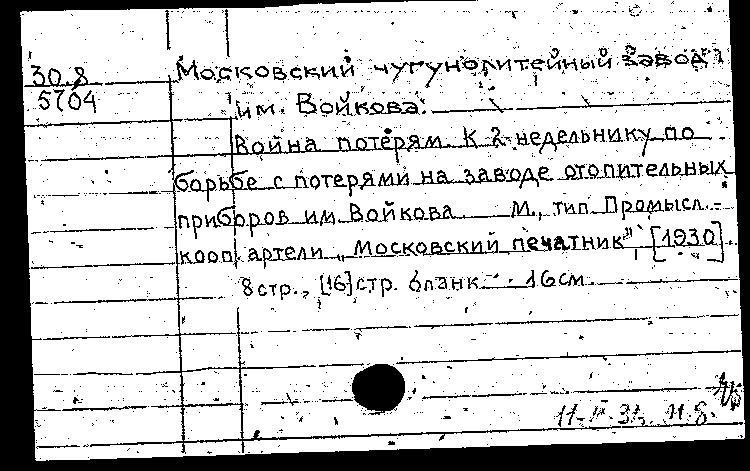 30.8
5704
Московский чугунолитейный завод
им. Войкова.
Война потерям. К 2-недельнику по
борьбе с потерями на заводе отопительных
приборов им. Войкова. М., тип. Промысл.-
кооп. артели "Московский печатник", [1930].
8 стр., [16] стр. бланк. 16 см.